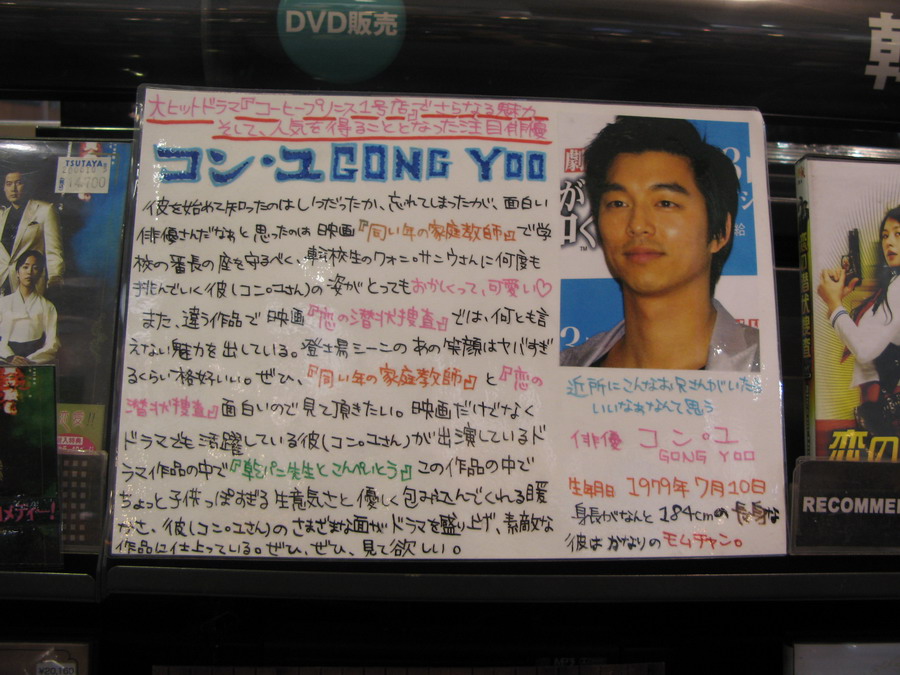 DVD販売
韓
TSUTAYA
大ヒットドラマ『コーヒープリンス1号店』でさらなる魅力
そして、人気を得ることとなった注目俳優
コン・ユ GONG YOO
彼を始めて知ったのはいつだったか、忘れてしまったが、面白い
俳優さんだなぁと思ったのは映画『同い年の家庭教師』で学
校の番長の座を守るべく、転校生のクォン・サンウさんに何度も
挑んでいく彼(コン・ユさん)の姿がとってもおかしくって、可愛い♡
また、違う作品で映画『恋の潜伏捜査』では、何とも言
えない魅力を出している。登場シーンのあの笑顔はヤバすぎ
るくらい格好いい。ぜひ、『同い年の家庭教師』と『恋の
潜伏捜査』面白いので見て頂きたい。映画だけでなく
ドラマでも活躍している彼(コン・ユさん)が出演しているド
ラマ作品の中で『乾パン先生とこんぺいとう』この作品の中で
ちょっと子供っぽすぎる生意気さと優しく包み込んでくれる暖
かさ、彼(コン・ユさん)のさまざまな面がドラマを盛り上げ、素敵な
作品に仕上っている。ぜひ、ぜひ、見て欲しい。
近所にこんなお兄さんがいたら
いいなぁなんて思う
俳優 コン・ユ
GONG YOO
生年月日 1979年7月10日
身長がなんと184cmの長身な
彼はかなりのモムチャン。
劇
が
く
給
メディー!
恋の
RECOMME
¥20,160